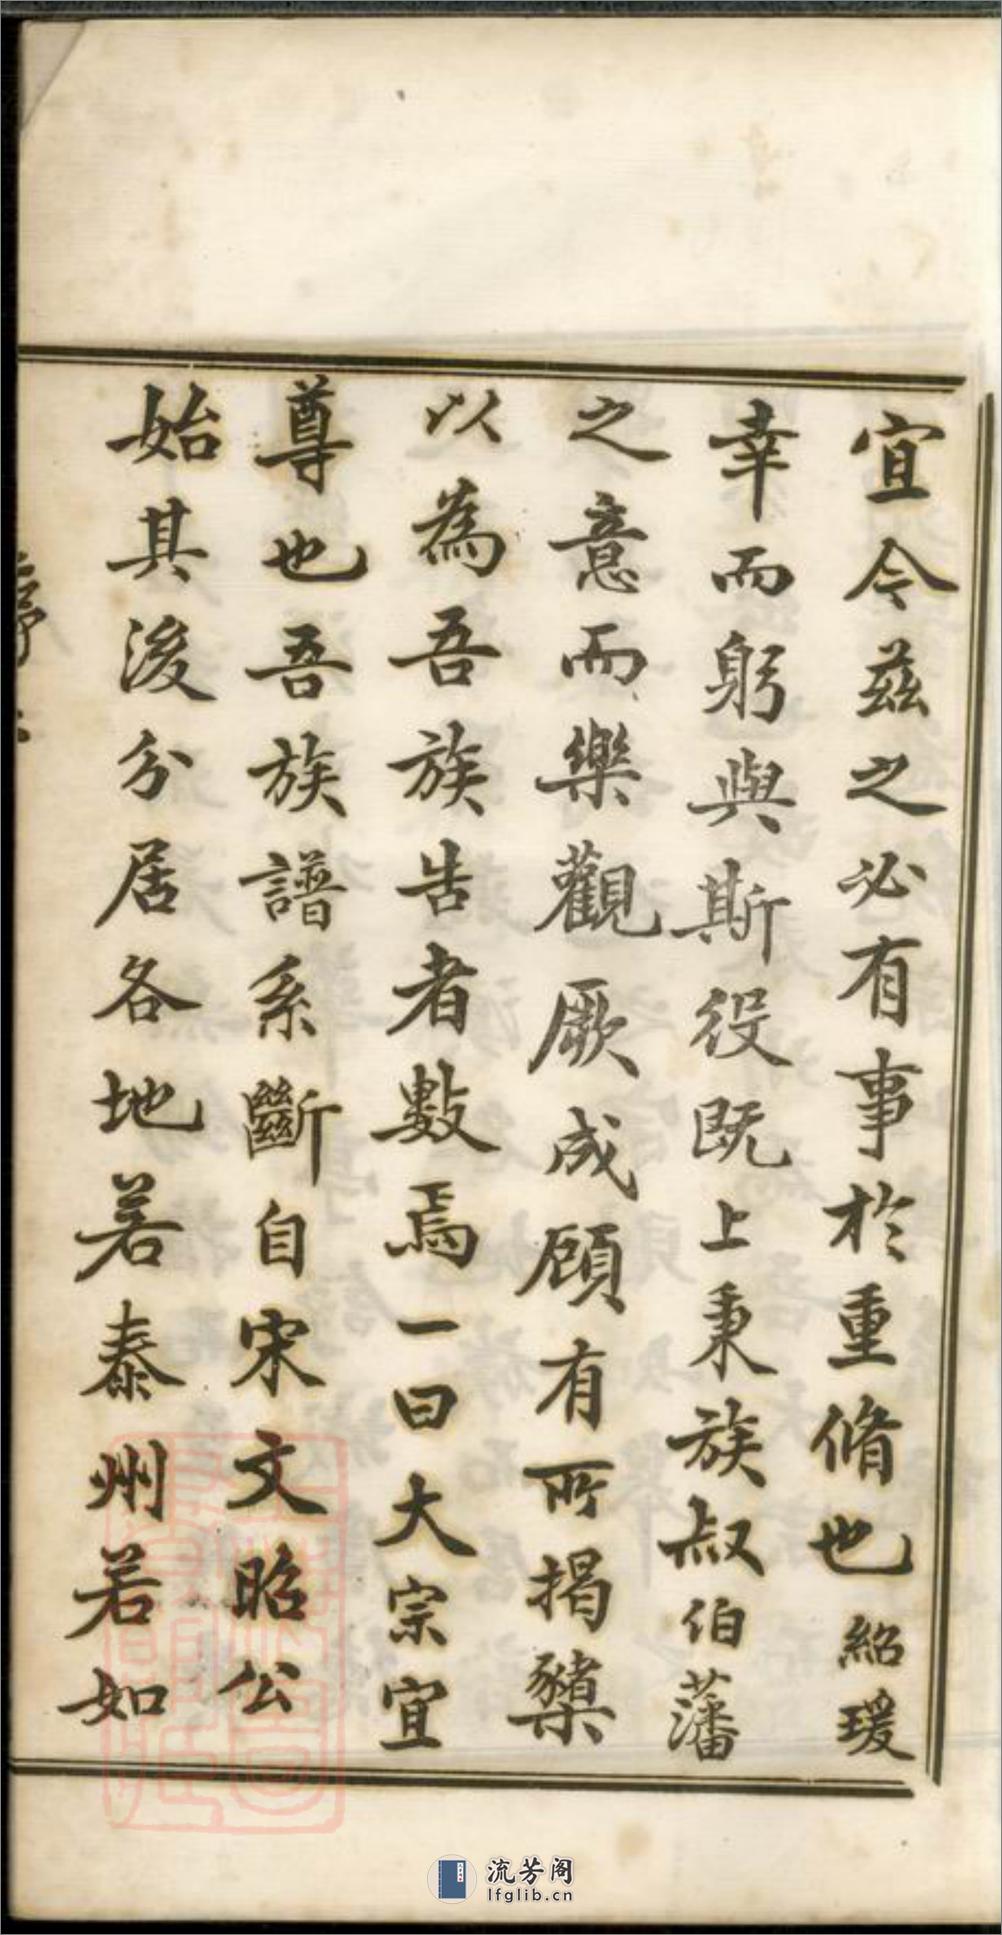 宜今茲之必有事於重脩也紹瑗
幸而躬與斯役既上秉族叔伯藩
之意而樂觀厥成顧有所揭櫫
以為吾族告者數焉一曰大宗宜
尊也吾族譜系斷自宋文昭公
始其後分居各地若泰州若如
流芳阁
lfglib.cn